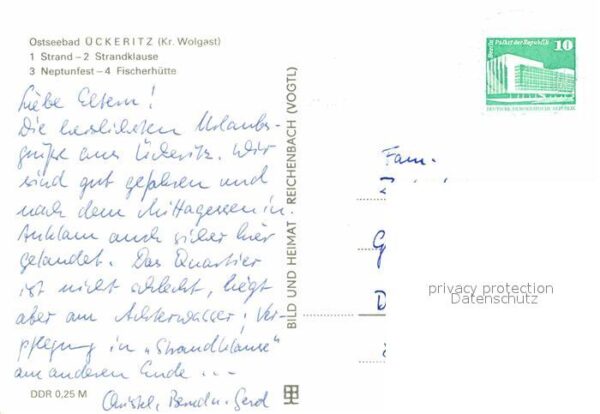 Ostseebad ÜCKERITZ (Kr. Wolgast)
1 Strand – 2 Strandklause
3 Neptunfest – 4 Fischerhütte
Liebe Eltern!
Die herzlichsten Urlaubs-
grüße aus Ückeritz. Wir
sind gut gefahren und
nach dem Mittagessen in
Anklam auch sicher hier
gelandet. Das Quartier
ist nicht schlecht, liegt
aber am Achterwasser; Ver-
pflegung in „Strandklause"
am anderen Ende ...
Christel, Gerd
DDR 0,25 M
BILD UND HEIMAT REICHENBACH (VOGTL)
Berlin Palast der Republik
10
DEUTSCHE DEMOKRATISCHE REPUBLIK
Fam.
G
D
privacy protection
Datenschutz